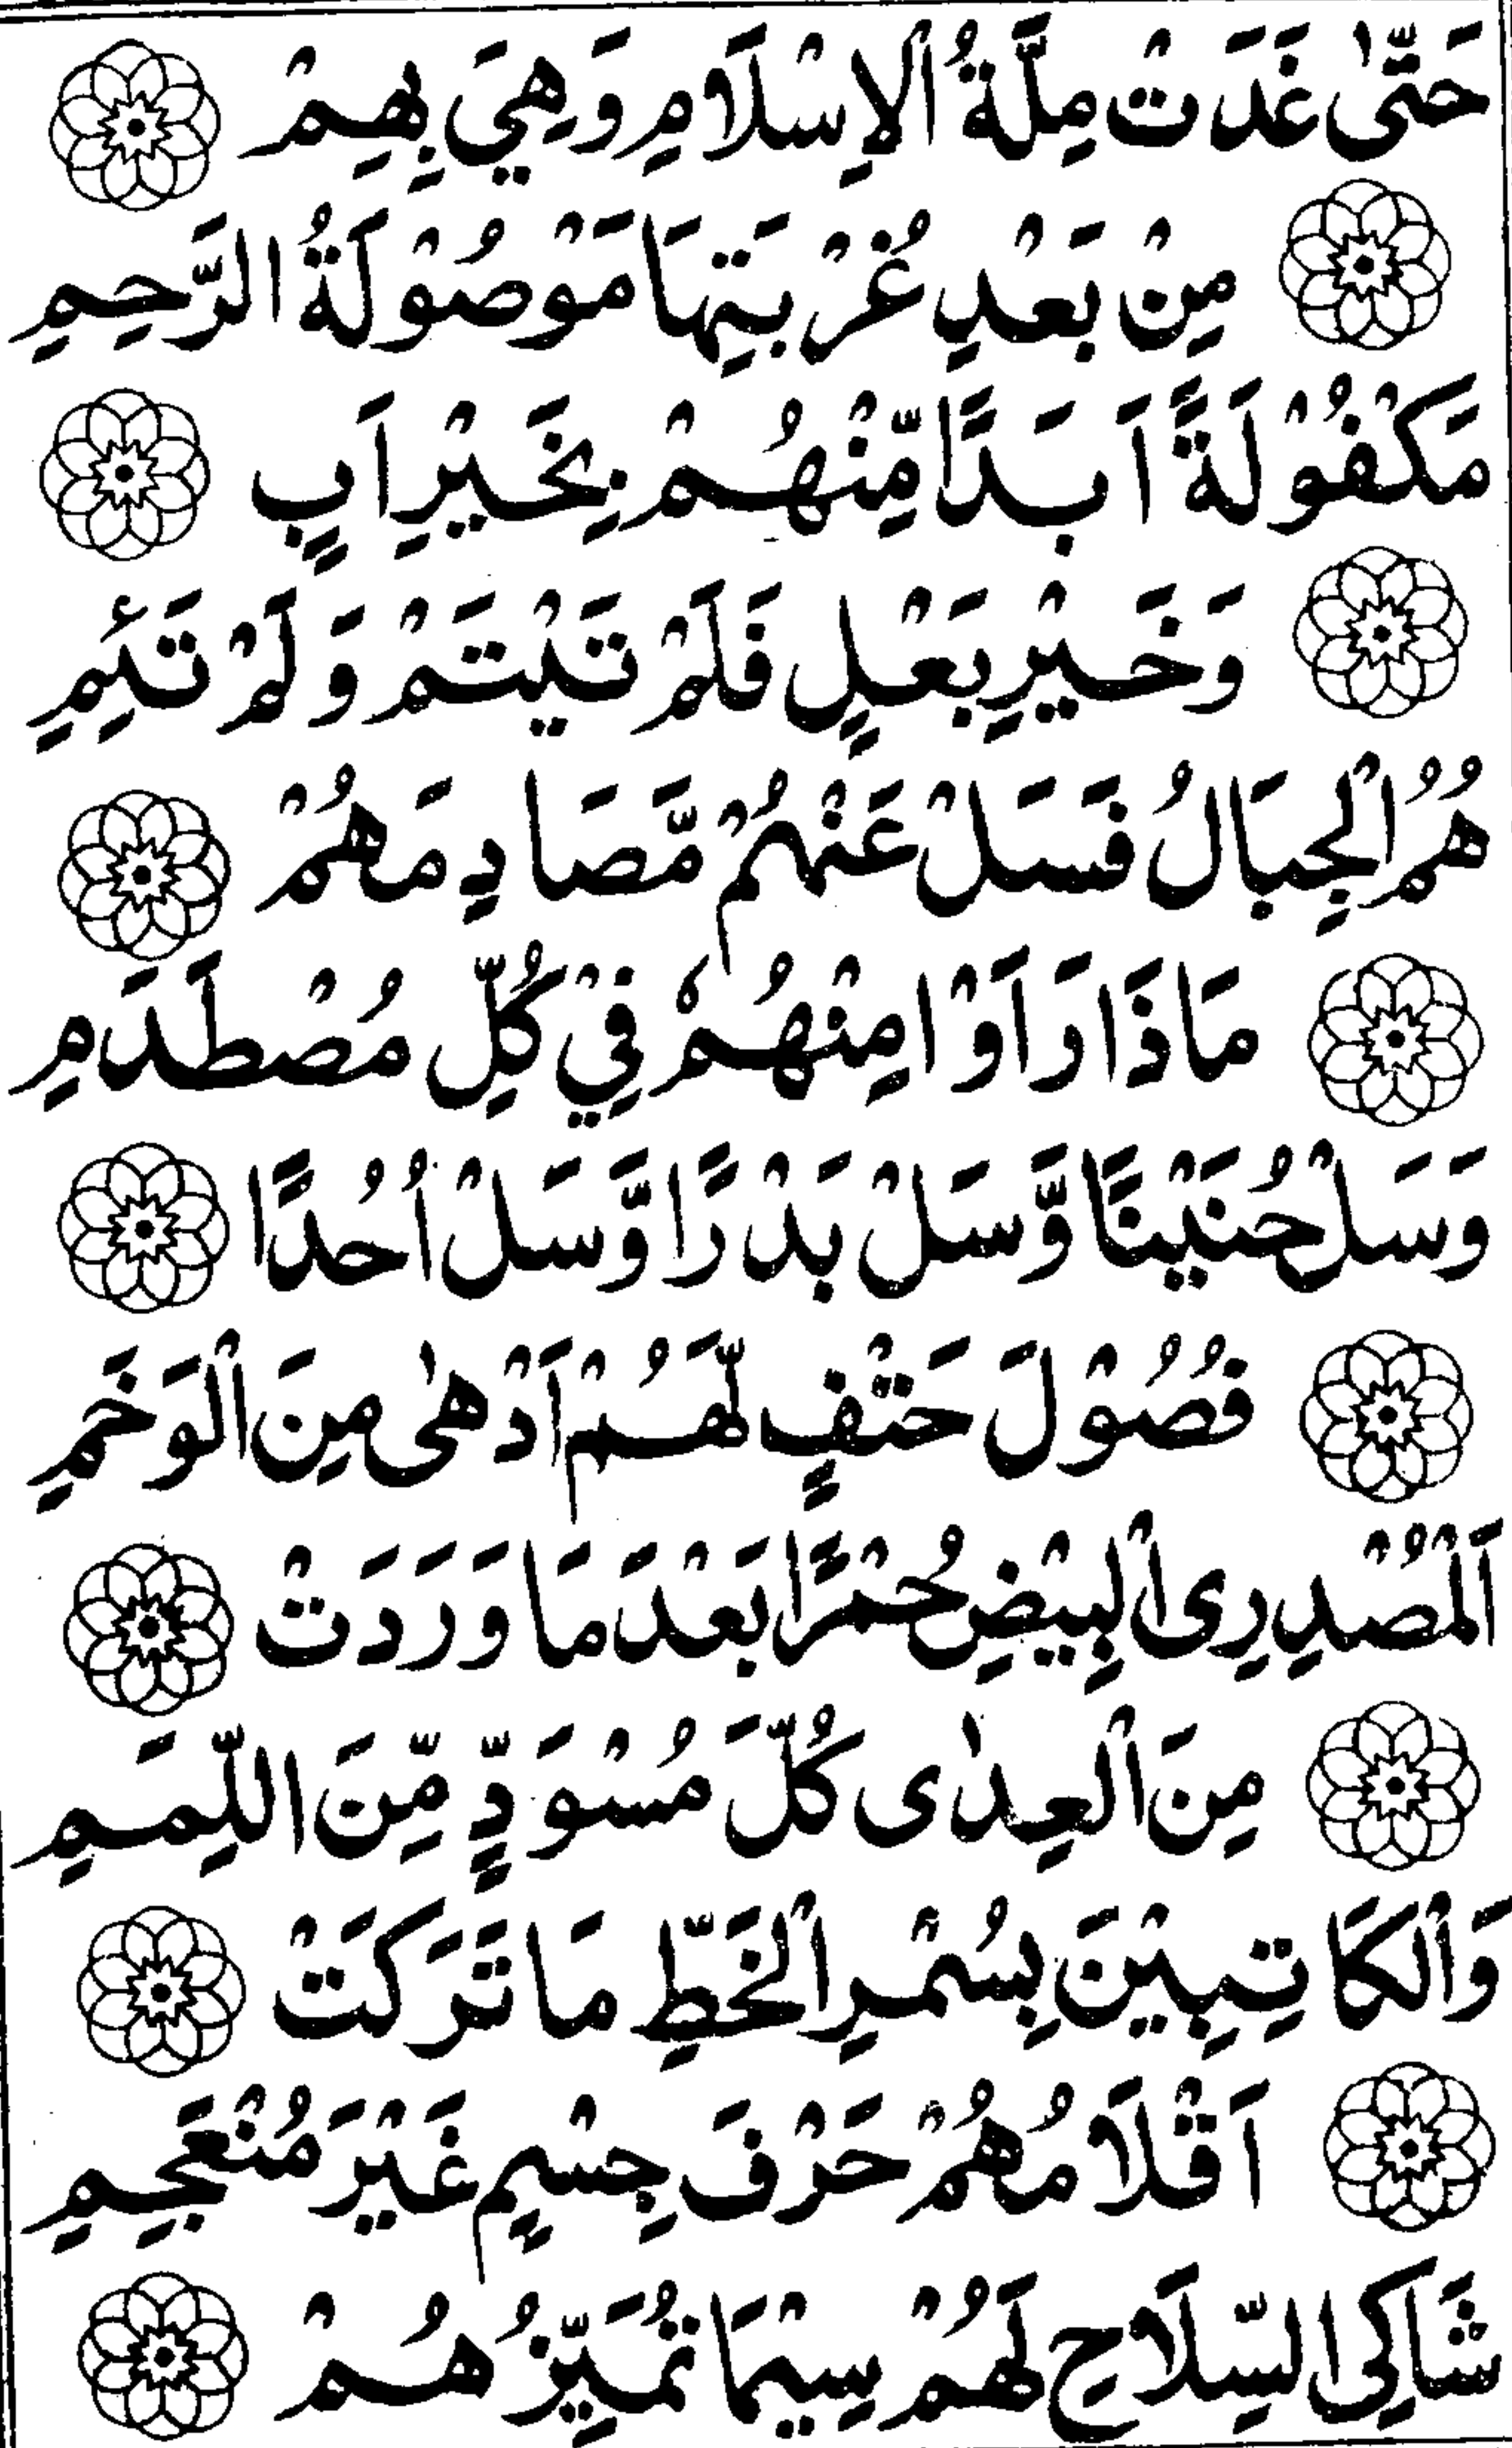 حَتّٰى غَدَتْ مِلَّةُ الْاِسْلَامِ وَهِيَ بِهِمْ
مِنْ بَعْدِ غُرْبَتِهَا مَوْصُوْلَةُ الرَّحِيمِ
مَكْفُوْلَةً اَبَدًا مِّنْهُمْ بِخَيْرِ اَبٍ
وَخَيْرِ بَعْلٍ فَلَمْ تَيْتَمْ وَلَمْ تَئِمِ
هُمُ الْجِبَالُ فَسَلْ عَنْهُمْ مَّصَادِمَهُمْ
مَاذَا رَاَوْا مِنْهُمْ فِيْ كُلِّ مُصْطَدَمِ
وَسَلْ حُنَيْنًا وَّسَلْ بَدْرًا وَّسَلْ اُحُدًا
فُصُوْلَ حَتْفٍ لَّهُمْ اَدْهٰى مِنَ الْوَخَمِ
اَلْمُصْدِرِى الْبِيْضِ حُمْرًا بَعْدَ مَا وَرَدَتْ
مِنَ الْعِدٰى كُلَّ مُسْوَدٍّ مِّنَ اللِّمَمِ
وَالْكَاتِبِيْنَ بِسُمْرِ الْخَطِّ مَا تَرَكَتْ
اَقْلَامُهُمْ حَرْفَ جِسْمٍ غَيْرَ مُنْعَجِمِ
شَاكِى السِّلَاحِ لَهُمْ سِيْمَا تُمَيِّزُهُمْ